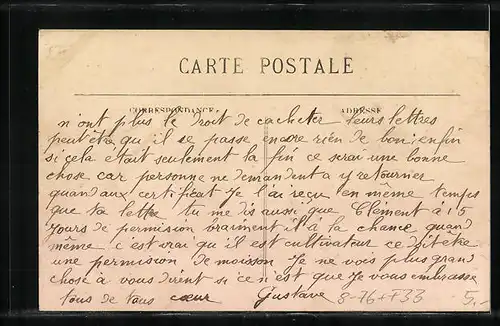 CARTE POSTALE
CORRESPONDANCE ADRESSE
n'ont plus le droit de cacheter leurs lettres
peut être qu'il se passe encore rien de bon, enfin
si cela etait seulement la fin ce serai une bonne
chose car personne ne demandent a y retourner
quand aux certificat Je l'ai reçu en même temps
que ta lettre tu me dis aussi que Clément à 15
Jours de permision vraiment il a la chance quand
même c'est vrai qu'il est cultivateur ce doit être
une permision de moisson Je ne vois plus grand
chose à vous dire si ce n'est que Je vous embrasse
tous de tous cœur Gustave 8-76 + F 33 5.-